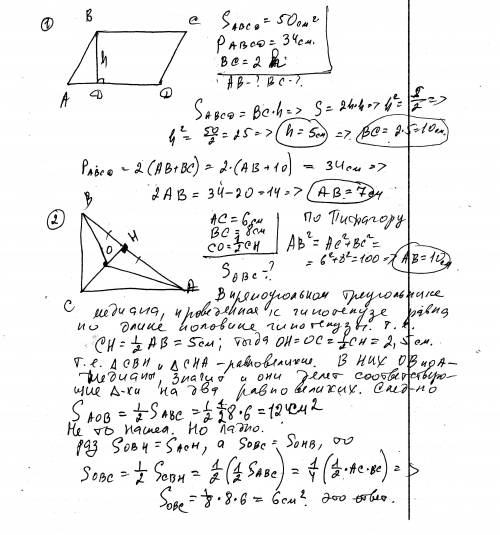 1
B C
S ABCD = 50 см²
P ABCD = 34 см.
BC = 2 h
AB - ? BC - ?
h
A D D
S ABCD = BC · h => S = 2h·h => h² = S/2 =>
h² = 50/2 = 25 => h = 5 см => BC = 2·5 = 10 см.
P ABCD = 2(AB+BC) = 2·(AB+10) = 34 см =>
2AB = 34-20 = 14 => AB = 7 см
2
B
H
O
C A
AC = 6 см
BC = 8 см
CO = ½ CH
S OBC - ?
По Пифагору
AB² = AC² + BC² =
= 6² + 8² = 100 => AB = 10 см
В прямоугольном треугольнике
медиана, проведенная к гипотенузе равна
по длине половине гипотенузы. т.к.
CH = ½ AB = 5 см; тогда OH = OC = ½ CH = 2,5 см.
т.е. △CBH и △CHA - равновеликие. В них OB и OA-
медианы, значит и они делят соответствую-
щие △-ки на два равновеликих. След-но
S AOB = ½ S ABC = ½ ½ 8·6 = 12 см²
Не то нашел. Но ладно.
раз S BH = S ACH, а S OBC = S OHB, то
S OBC = ½ S CBH = ½ (½ S ABC) = ¼ (½ · AC · BC) =>
S OBC = ⅛ · 8 · 6 = 6 см². это ответ.